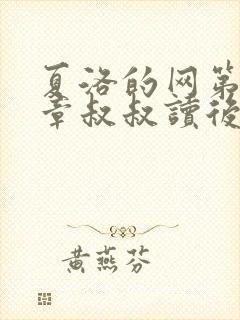 夏洛的网第
章叔叔讀後
黄燕芬